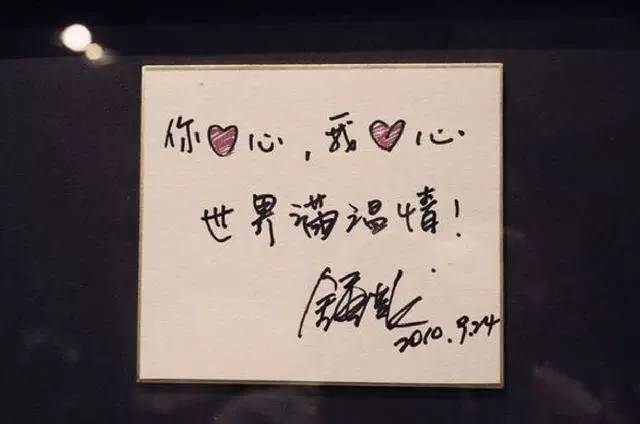 你♥心，我♥心
世界满温情！
2010.9.24